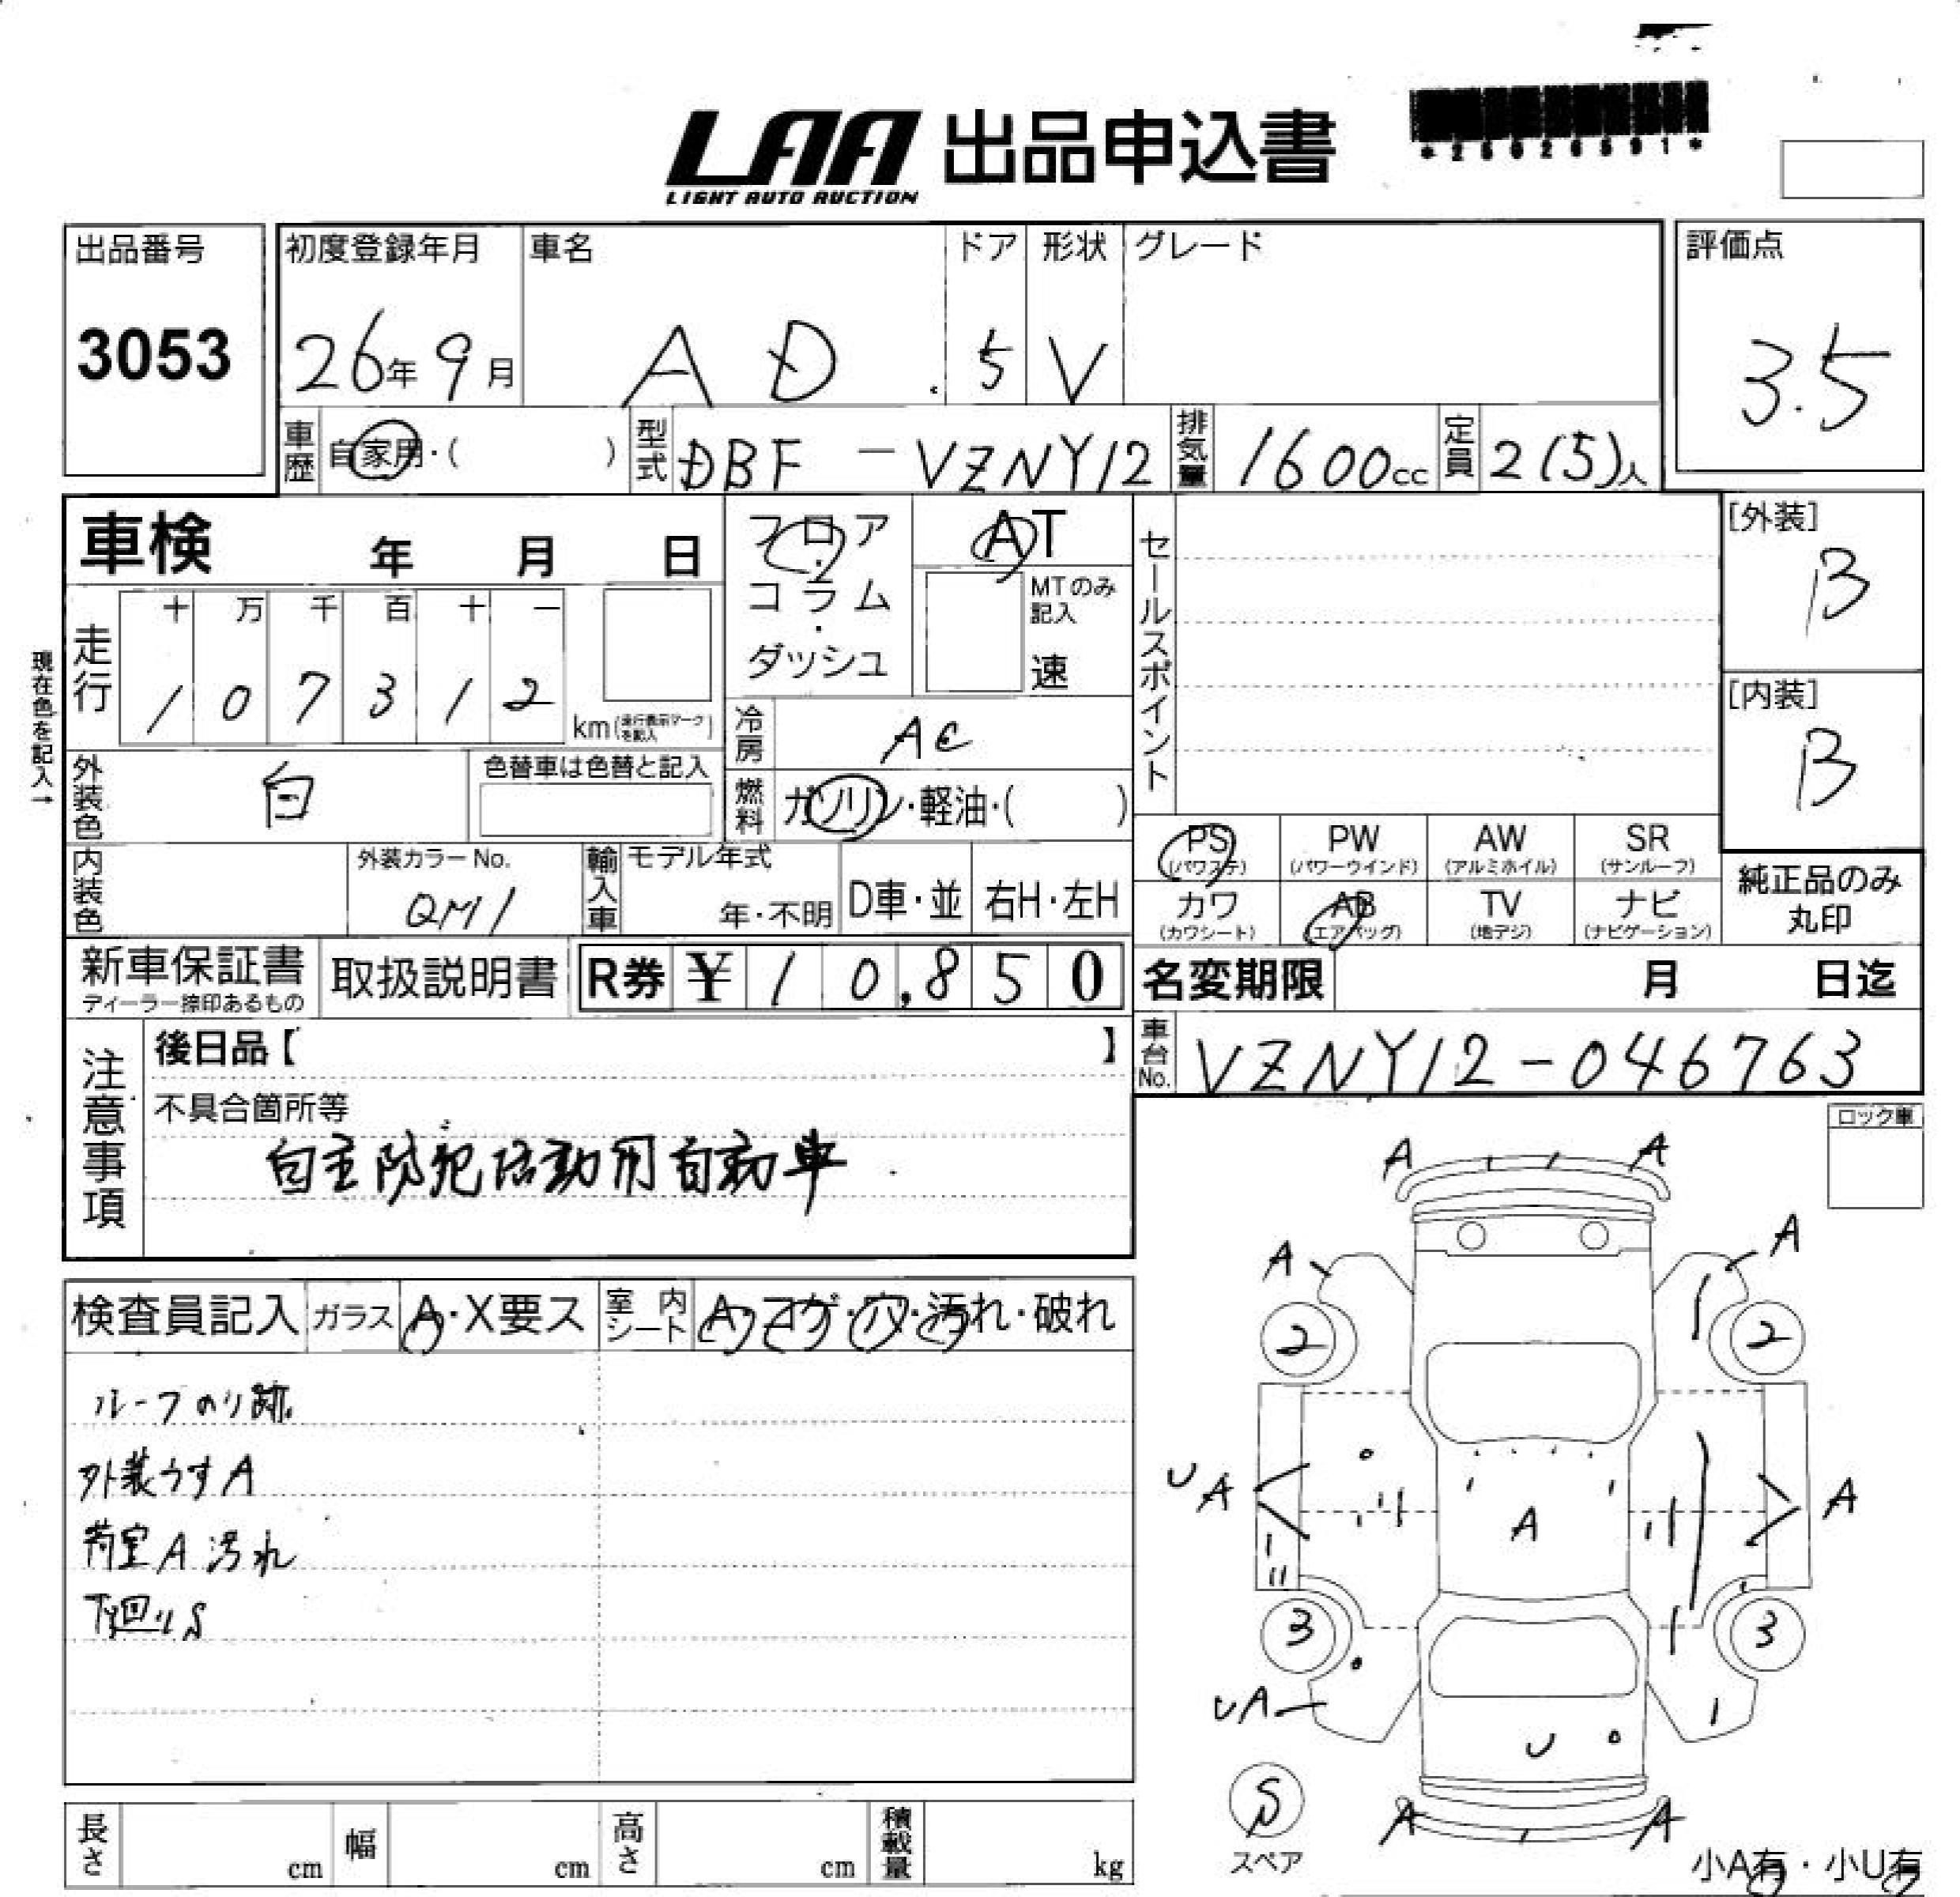 LAA 出品申込書
LIGHT AUTO AUCTION
*25026591*
出品番号
3053
初度登録年月
26年 9月
車名
AD
ドア
5
形状
V
グレード
評価点
3.5
車歴
自家用・( )
型式
DBF - VZNY12
排気量
1600cc
定員
2(5)人
車検 年 月 日
フロア
・
コラム
・
ダッシュ
AT
MTのみ
記入
速
セールスポイント
[外装]
B
[内装]
B
現在色を記入→
走行
十 万 千 百 十 一
1 0 7 3 1 2
km(走行表示マークを記入)
冷房
AC
外装色
白
色替車は色替と記入
燃料
ガソリン・軽油・( )
内装色
外装カラー No.
QM1
輸入車
モデル年式
年・不明
D車・並
右H・左H
PS
(パワステ)
PW
(パワーウインド)
AW
(アルミホイル)
SR
(サンルーフ)
カワ
(カワシート)
AB
(エアバッグ)
TV
(地デジ)
ナビ
(ナビゲーション)
純正品のみ
丸印
新車保証書
ディーラー捺印あるもの
取扱説明書
R券 ¥ 10,850
名変期限 月 日迄
車台No.
VZNY12-046763
注意事項
後日品【 】
不具合箇所等
自主防犯活動用自動車
ロック車
検査員記入
ガラス
A・X要ス
室内シート
A・コゲ・穴・汚れ・破れ
ルーフのり跡
外装うすA
荷室A 汚れ
下廻りS
A A
A A
2 2
UA A A
3 3
UA
U
S
スペア
A A
小A有・小U有
長さ cm
幅 cm
高さ cm
積載量 kg